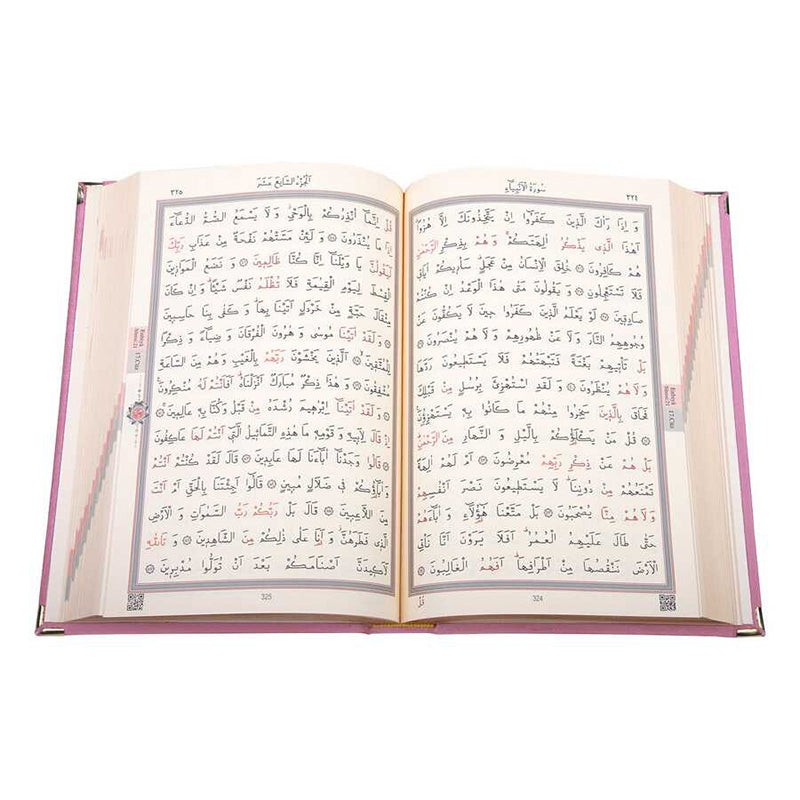 سورة الانبياء
٣٢٤
وَ اِذَا رَاٰكَ الَّذٖينَ كَفَرُٓوا اِنْ يَتَّخِذُونَكَ اِلَّا هُزُوًا
اَهٰذَا الَّذٖي يَذْكُرُ اٰلِهَتَكُمْ وَ هُمْ بِذِكْرِ الرَّحْمٰنِ
هُمْ كَافِرُونَ خُلِقَ الْاِنْسَانُ مِنْ عَجَلٍ سَاُرٖيكُمْ اٰيَاتٖي
فَلَا تَسْتَعْجِلُونِ وَ يَقُولُونَ مَتٰى هٰذَا الْوَعْدُ اِنْ كُنْتُمْ
صَادِقٖينَ لَوْ يَعْلَمُ الَّذٖينَ كَفَرُوا حٖينَ لَا يَكُفُّونَ عَنْ
وُجُوهِهِمُ النَّارَ وَ لَا عَنْ ظُهُورِهِمْ وَ لَا هُمْ يُنْصَرُونَ
بَلْ تَاْتٖيهِمْ بَغْتَةً فَتَبْهَتُهُمْ فَلَا يَسْتَطٖيعُونَ رَدَّهَا
وَ لَا هُمْ يُنْظَرُونَ وَ لَقَدِ اسْتُهْزِئَ بِرُسُلٍ مِنْ قَبْلِكَ
فَحَاقَ بِالَّذٖينَ سَخِرُوا مِنْهُمْ مَا كَانُوا بِهٖ يَسْتَهْزِؤُنَ
قُلْ مَنْ يَكْلَؤُكُمْ بِالَّيْلِ وَ النَّهَارِ مِنَ الرَّحْمٰنِ
بَلْ هُمْ عَنْ ذِكْرِ رَبِّهِمْ مُعْرِضُونَ اَمْ لَهُمْ اٰلِهَةٌ
تَمْنَعُهُمْ مِنْ دُونِنَا لَا يَسْتَطٖيعُونَ نَصْرَ اَنْفُسِهِمْ
وَ لَا هُمْ مِنَّا يُصْحَبُونَ بَلْ مَتَّعْنَا هٰٓؤُلَٓاءِ وَ اٰبَٓاءَهُمْ
حَتّٰى طَالَ عَلَيْهِمُ الْعُمُرُ اَفَلَا يَرَوْنَ اَنَّا نَاْتِي
الْاَرْضَ نَنْقُصُهَا مِنْ اَطْرَافِهَا اَفَهُمُ الْغَالِبُونَ
قُلْ
324
الجزء السابع عشر
٣٢٥
قُلْ اِنَّمَٓا اُنْذِرُكُمْ بِالْوَحْيِ وَ لَا يَسْمَعُ الصُّمُّ الدُّعَٓاءَ
اِذَا مَا يُنْذَرُونَ وَ لَئِنْ مَسَّتْهُمْ نَفْحَةٌ مِنْ عَذَابِ رَبِّكَ
لَيَقُولُنَّ يَا وَيْلَنَٓا اِنَّا كُنَّا ظَالِمٖينَ وَ نَضَعُ الْمَوَازٖينَ
الْقِسْطَ لِيَوْمِ الْقِيٰمَةِ فَلَا تُظْلَمُ نَفْسٌ شَيْئًا وَ اِنْ كَانَ
مِثْقَالَ حَبَّةٍ مِنْ خَرْدَلٍ اَتَيْنَا بِهَا وَ كَفٰى بِنَا حَاسِبٖينَ
وَ لَقَدْ اٰتَيْنَا مُوسٰى وَ هٰرُونَ الْفُرْقَانَ وَ ضِيَٓاءً وَ ذِكْرًا
لِلْمُتَّقٖينَ اَلَّذٖينَ يَخْشَوْنَ رَبَّهُمْ بِالْغَيْبِ وَ هُمْ مِنَ السَّاعَةِ
مُشْفِقُونَ وَ هٰذَا ذِكْرٌ مُبَارَكٌ اَنْزَلْنَاهُ اَفَاَنْتُمْ لَهُ مُنْكِرُونَ
وَ لَقَدْ اٰتَيْنَٓا اِبْرٰهٖيمَ رُشْدَهُ مِنْ قَبْلُ وَ كُنَّا بِهٖ عَالِمٖينَ
اِذْ قَالَ لِاَبٖيهِ وَ قَوْمِهٖ مَا هٰذِهِ التَّمَاثٖيلُ الَّتٖٓي اَنْتُمْ لَهَا عَاكِفُونَ
قَالُوا وَجَدْنَٓا اٰبَٓاءَنَا لَهَا عَابِدٖينَ قَالَ لَقَدْ كُنْتُمْ اَنْتُمْ
وَ اٰبَٓاؤُكُمْ فٖي ضَلَالٍ مُبٖينٍ قَالُٓوا اَجِئْتَنَا بِالْحَقِّ اَمْ اَنْتَ
مِنَ اللَّاعِبٖينَ قَالَ بَلْ رَبُّكُمْ رَبُّ السَّمٰوَاتِ وَ الْاَرْضِ
الَّذٖي فَطَرَهُنَّ وَ اَنَا عَلٰى ذٰلِكُمْ مِنَ الشَّاهِدٖينَ وَ تَاللّٰهِ
لَاَكٖيدَنَّ اَصْنَامَكُمْ بَعْدَ اَنْ تُوَلُّوا مُدْبِرٖينَ
325